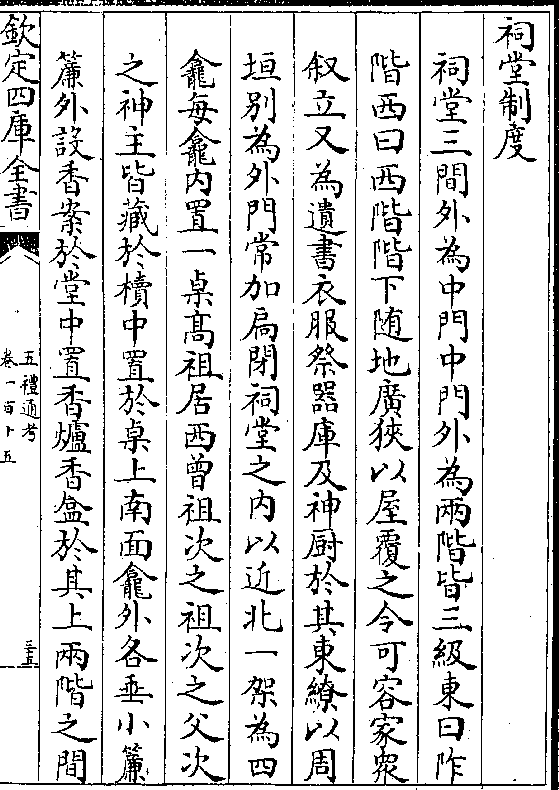 祠堂制度
祠堂三間外為中門中門外為兩階皆三級東曰阼
階西曰西階階下随地廣狹以屋覆之令可容家衆
叙立又為遺書衣服祭器庫及神厨於其東繚以周
垣别為外門常加扄閉祠堂之内以近北一架為四
龕每龕内置一桌髙祖居西曽祖次之祖次之父次
之神主皆藏於櫝中置於桌上南面龕外各垂小簾
簾外設香案於堂中置香爐香盒於其上兩階之間
欽定四庫全書
五禮通考
卷一百十五
三五